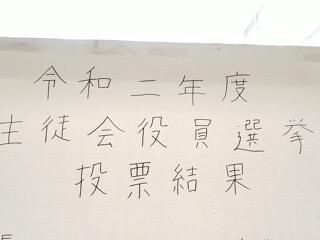 令和二年度
生徒会役員選挙
投票結果